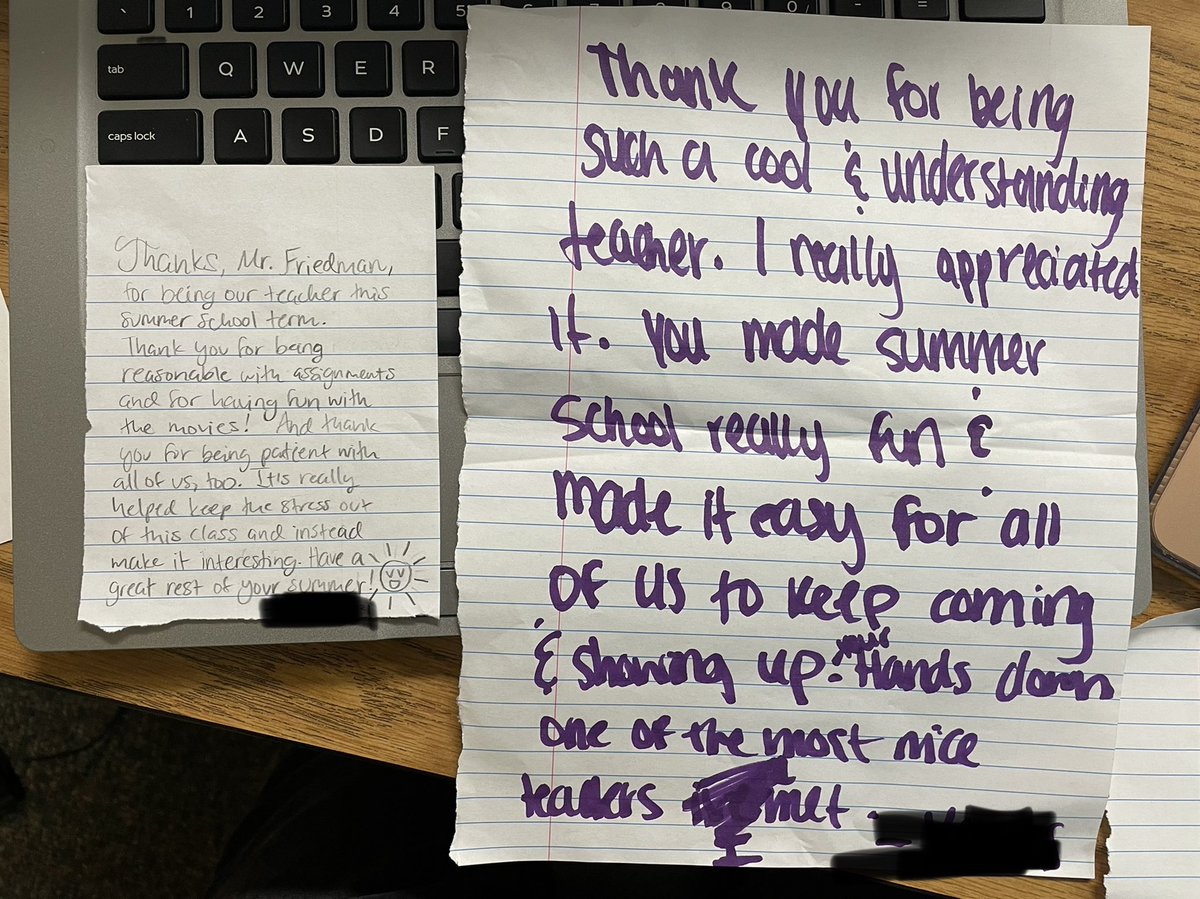 ` 1 2 3 4 5
tab Q W E R
caps lock A S D F
Thanks, Mr. Friedman,
for being our teacher this
summer school term.
Thank you for being
reasonable with assignments
and for having fun with
the movies! And thank
you for being patient with
all of us, too. It's really
helped keep the stress out
of this class and instead
make it interesting. Have a
great rest of your summer!
Thank you for being
such a cool & understanding
teacher. I really appreciated
it. You made summer
school really fun &
made it easy for all
of us to keep coming
& showing up! Hands down
one of the most nice
teachers met